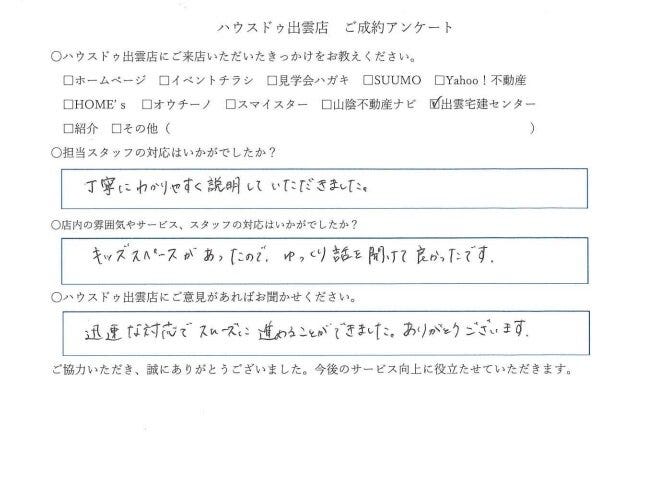 ハウスドゥ出雲店　ご成約アンケート
○ハウスドゥ出雲店にご来店いただいたきっかけをお教えください。
□ホームページ　□イベントチラシ　□見学会ハガキ　□SUUMO　□Yahoo！不動産
□HOME's　□オウチーノ　□スマイスター　□山陰不動産ナビ　☑出雲宅建センター
□紹介　□その他（　　　　　　　　　　　　　　　　　　　　　　　　　　）
○担当スタッフの対応はいかがでしたか？
丁寧にわかりやすく説明していただきました。
○店内の雰囲気やサービス、スタッフの対応はいかがでしたか？
キッズスペースがあったので、ゆっくり話を聞けて良かったです。
○ハウスドゥ出雲店にご意見があればお聞かせください。
迅速な対応でスムーズに進めることができました。ありがとうございます。
ご協力いただき、誠にありがとうございました。今後のサービス向上に役立たせていただきます。